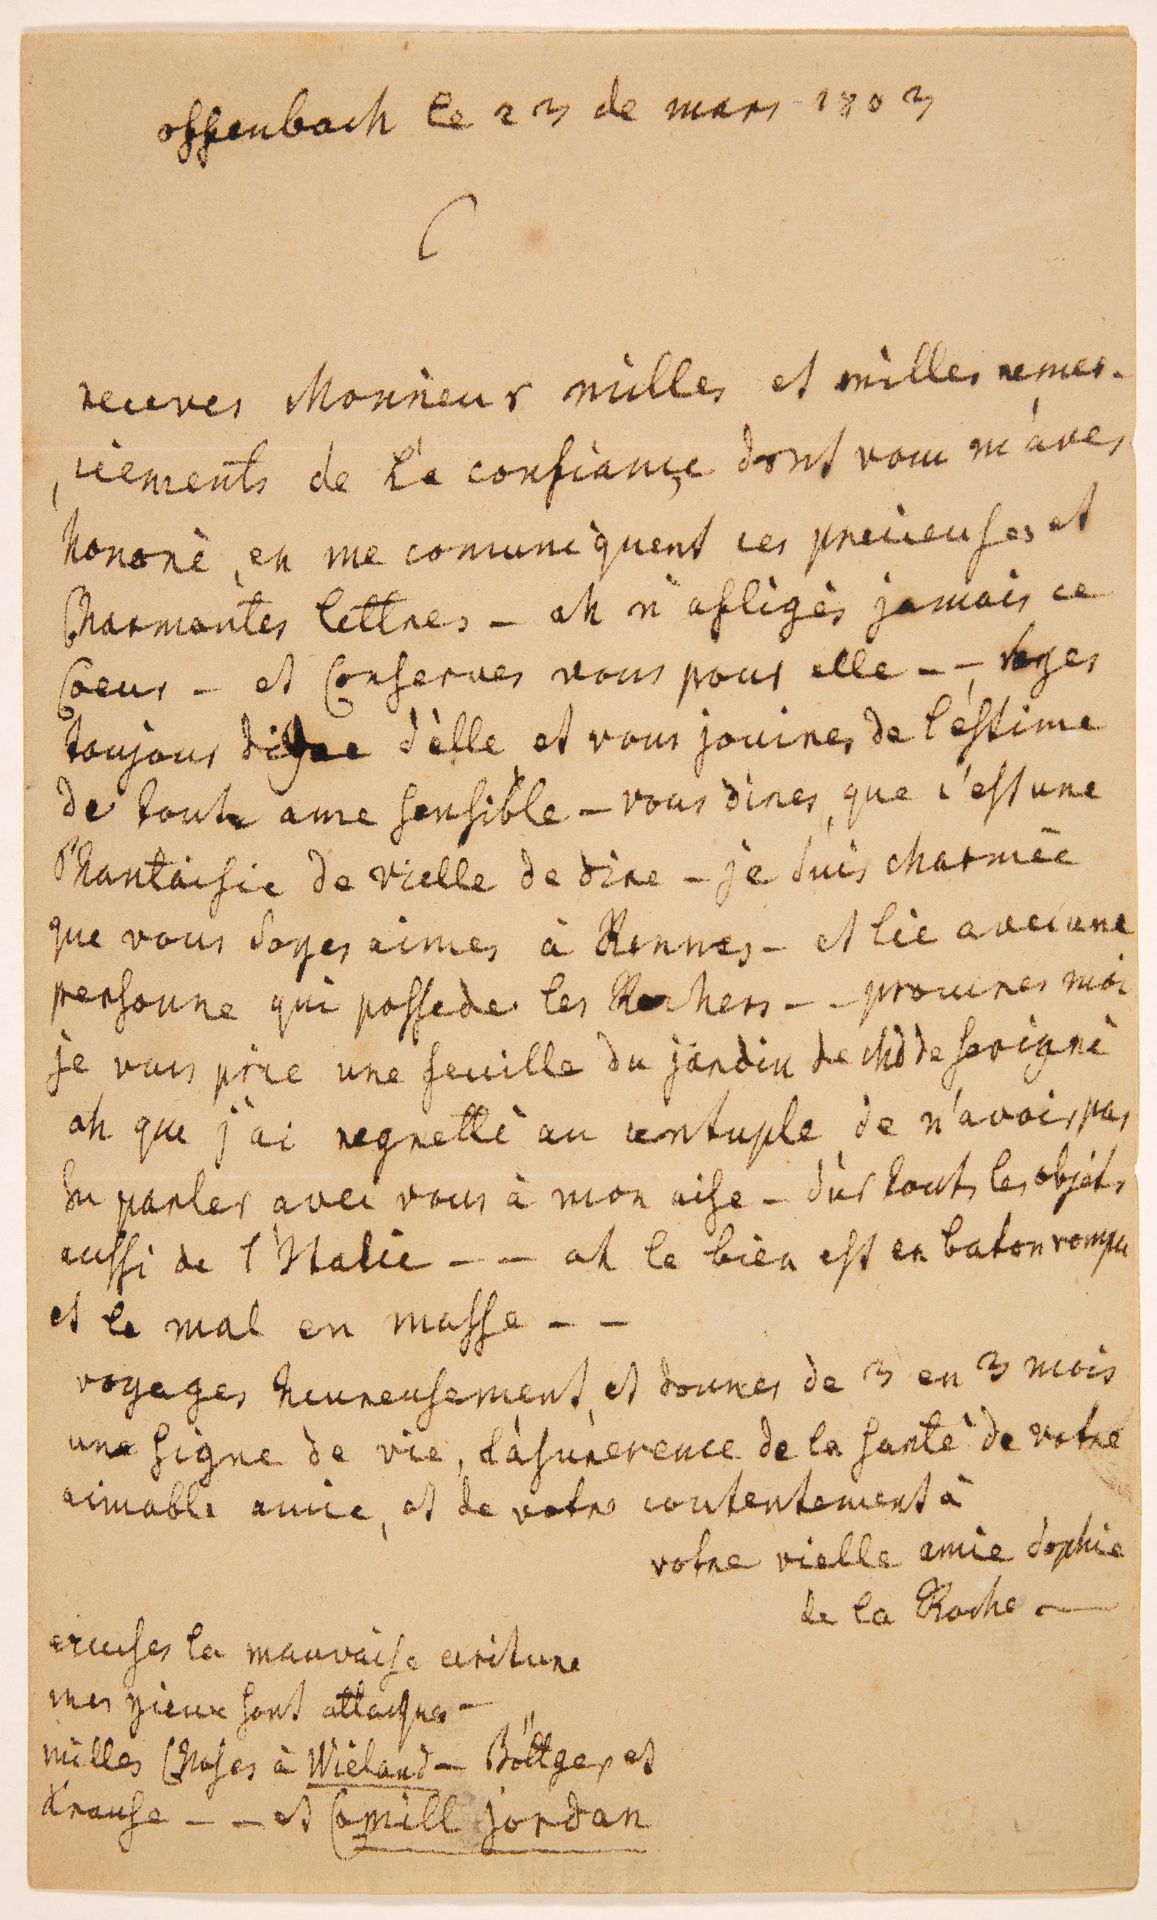 offenbach le 23 de mars 1803
receves Monsieur milles et milles remer-
ciements de la confiance dont vous m'aves
honorè, en me comuniquent ces precieuses et
Charmantes lettres - ah n'afligès jamais ce
Coeur - et Conserves vous pour elle - - soyes
toujours digne d'èlle et vous jouires de l'éstime
de toute ame sensible - vous dires, que c'est une
Phantaisie de vielle de dire - je suis charmèe
que vous soyes aimes à Rennes - et liè avec une
personne qui possede les Rochers - - procures moi
je vous prie une feuille du jardin de Md de sevignè
ah que j'ai regrettè au centuple de n'avoir pas
su parler avec vous à mon aise - sur tout les objets
aussi de l'Italie - - ah le bien est en baton rompu
et le mal en masse - -
voyages heureusement, et donnes de 3 en 3 mois
une signe de vie, de la santè de votre
aimable amie, et de votre contentement à
votre vielle amie Sophie
de la Roche -
excuses la mauvaise ecriture
mes yieux sont attaques -
milles Choses à Wieland - Böttger et
Krause - - et Camill jordan